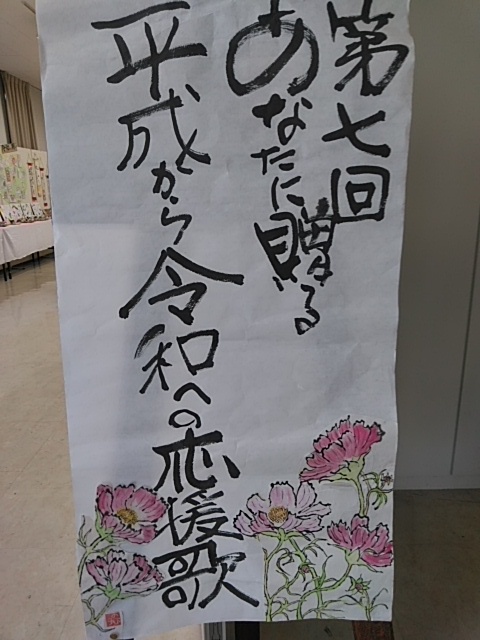 第七回
あなたに贈る
平成から令和への応援歌